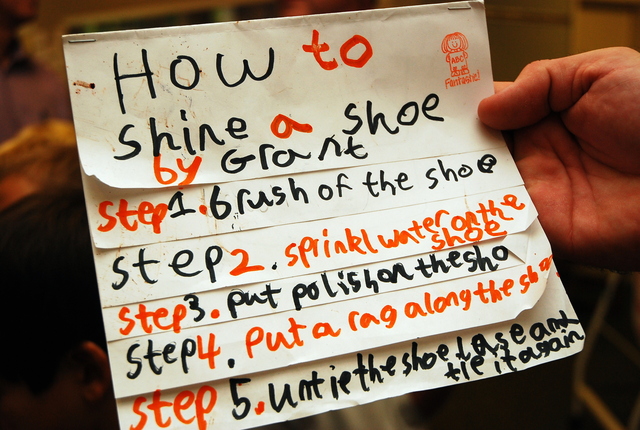 How to
shine a shoe
by Grant
ABC
Fantastic!
step 1. brush of the shoe
step 2. sprinkl water on the
shoe
step 3. put polish on the sho
step 4. put a rag along the
step 5. untie the shoe lase and
tie it again